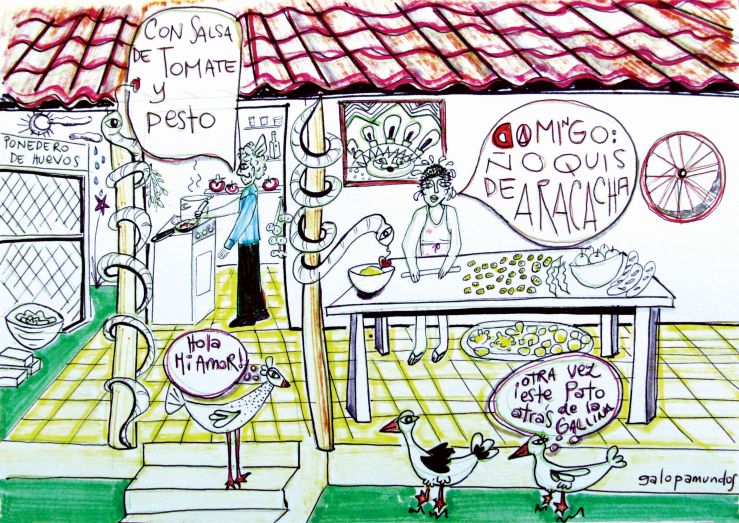 CON SALSA
DE TOMATE
y
PESTO
PONEDERO
DE HUEVOS
DOMINGO:
ÑOQUIS
DE
ARACACHA
Hola
Mi AMOR!
¡OTRA VEZ
¡este Pato
atrás de la
GALLINA
galopamundos